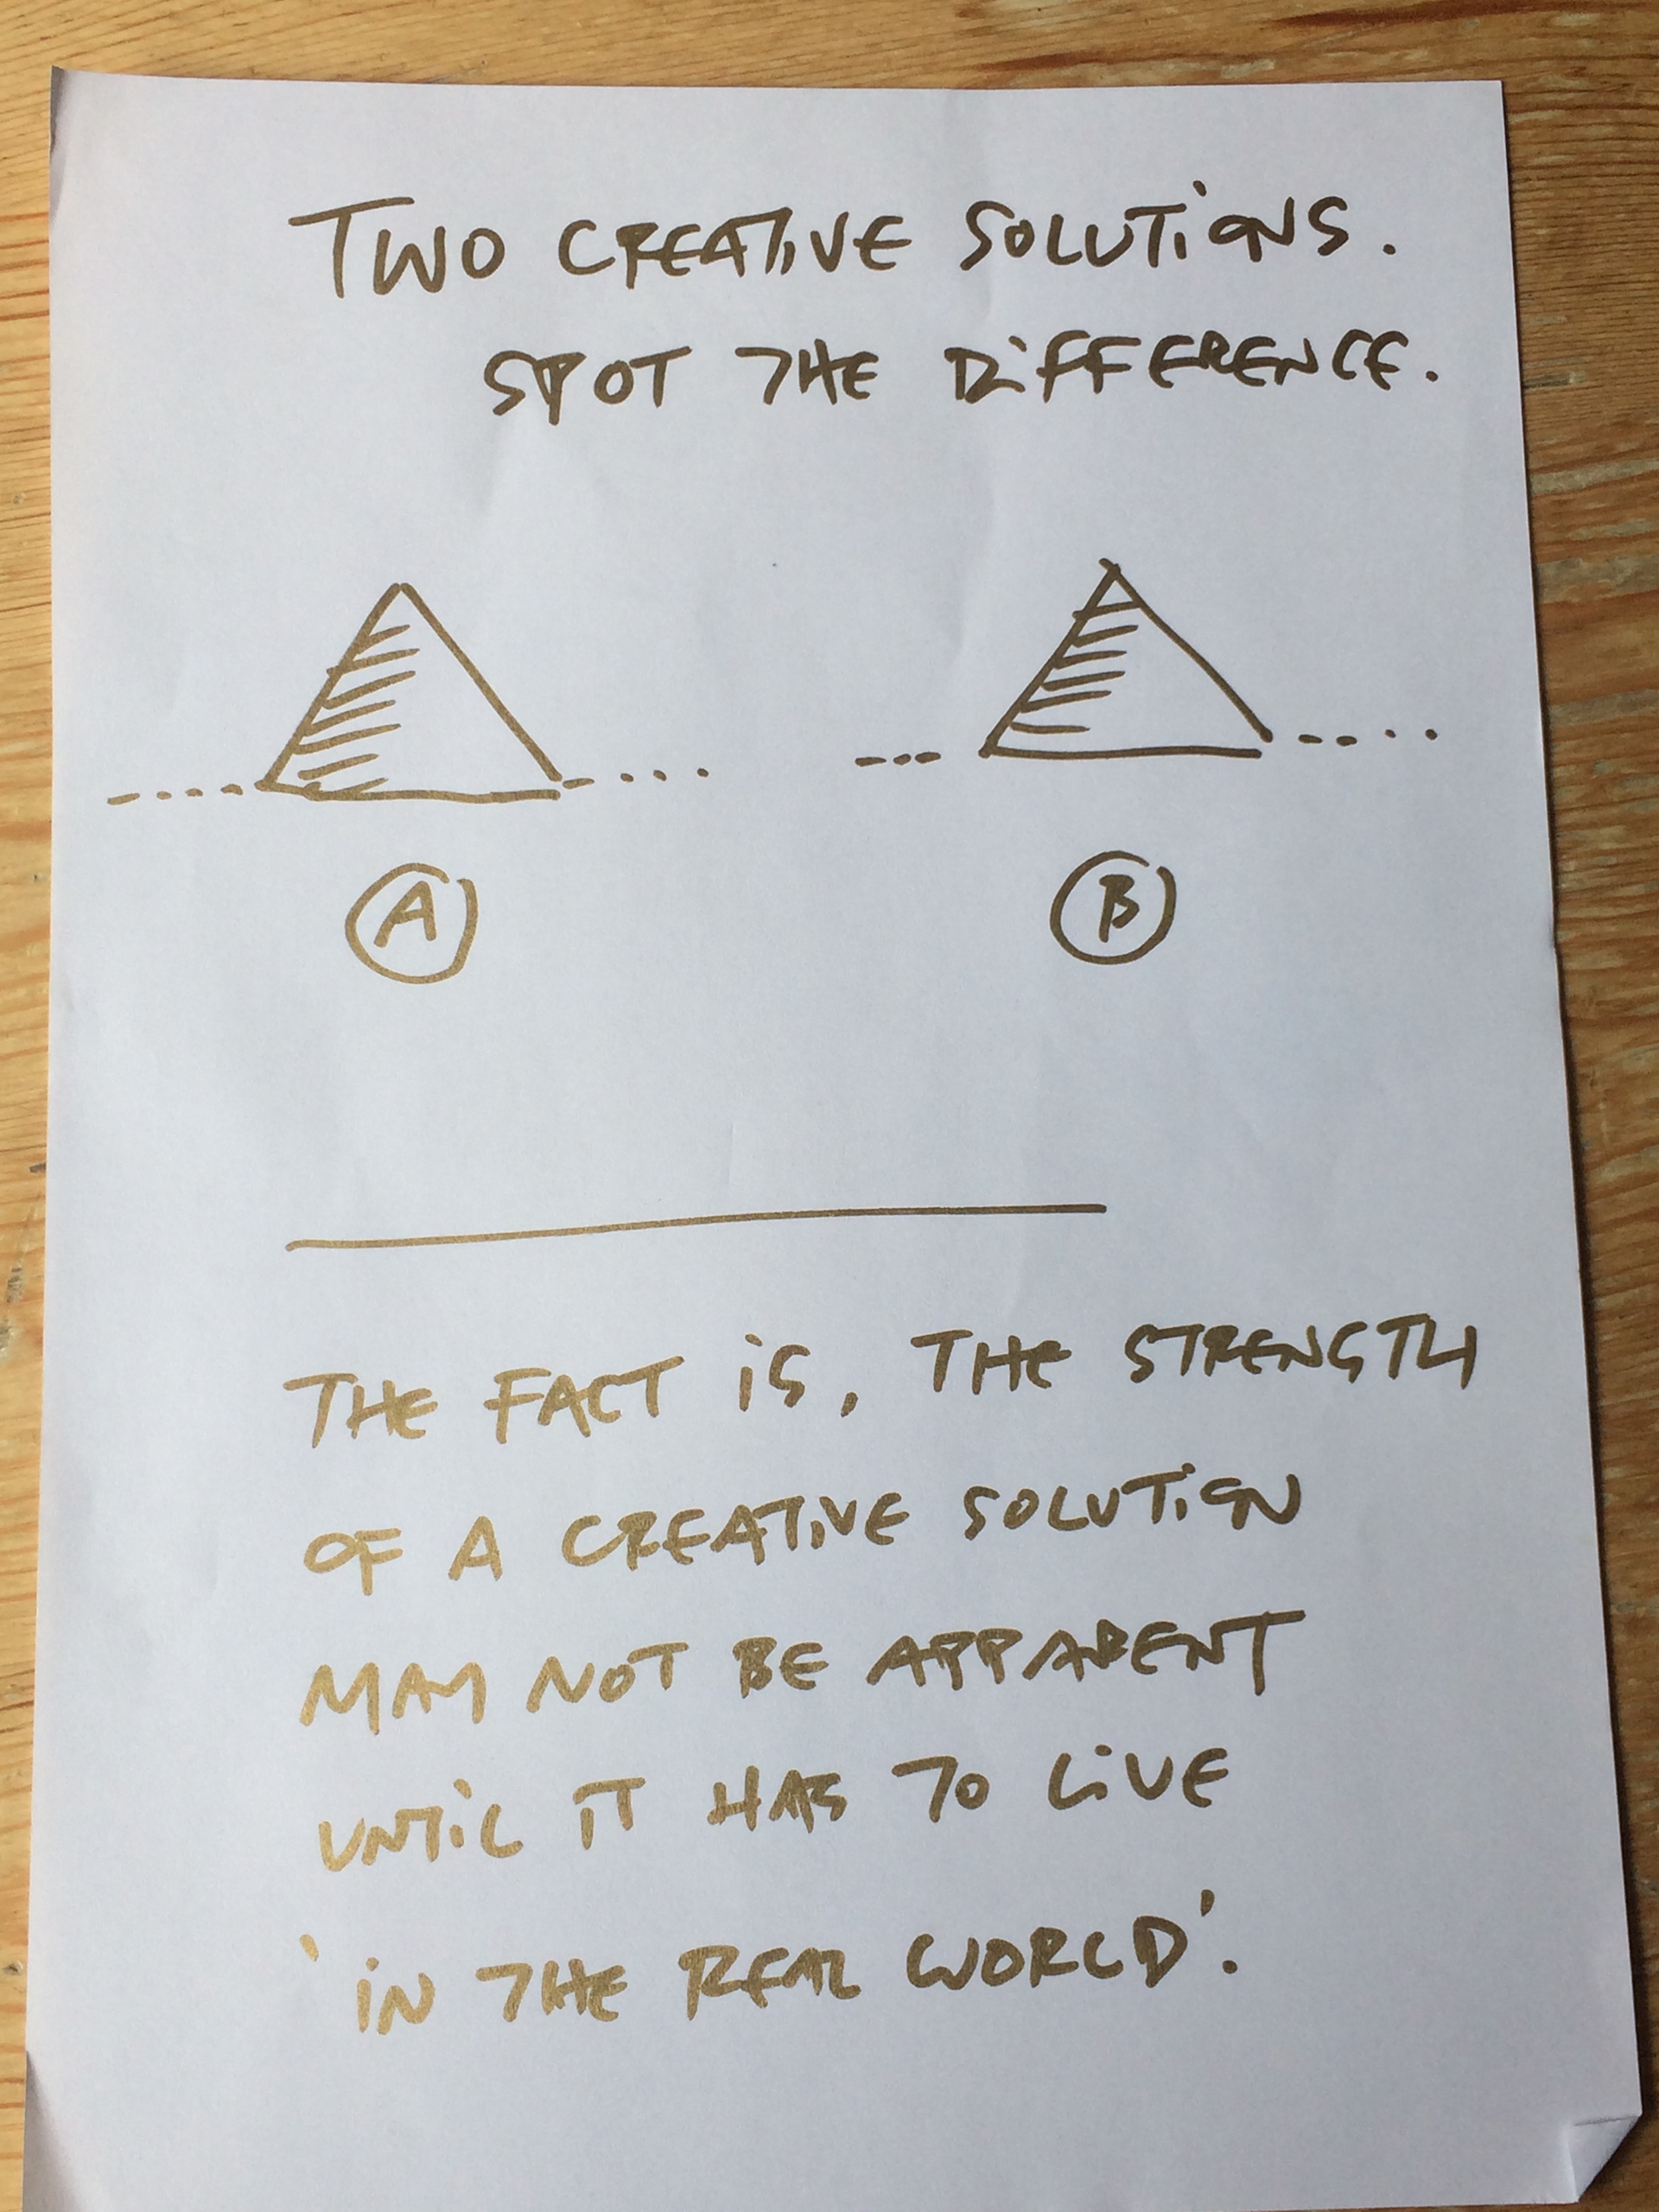 TWO CREATIVE SOLUTIONS.
SPOT THE DIFFERENCE.
A
B
THE FACT IS, THE STRENGTH
OF A CREATIVE SOLUTION
MAY NOT BE APPARENT
UNTIL IT HAS TO LIVE
'IN THE REAL WORLD'.